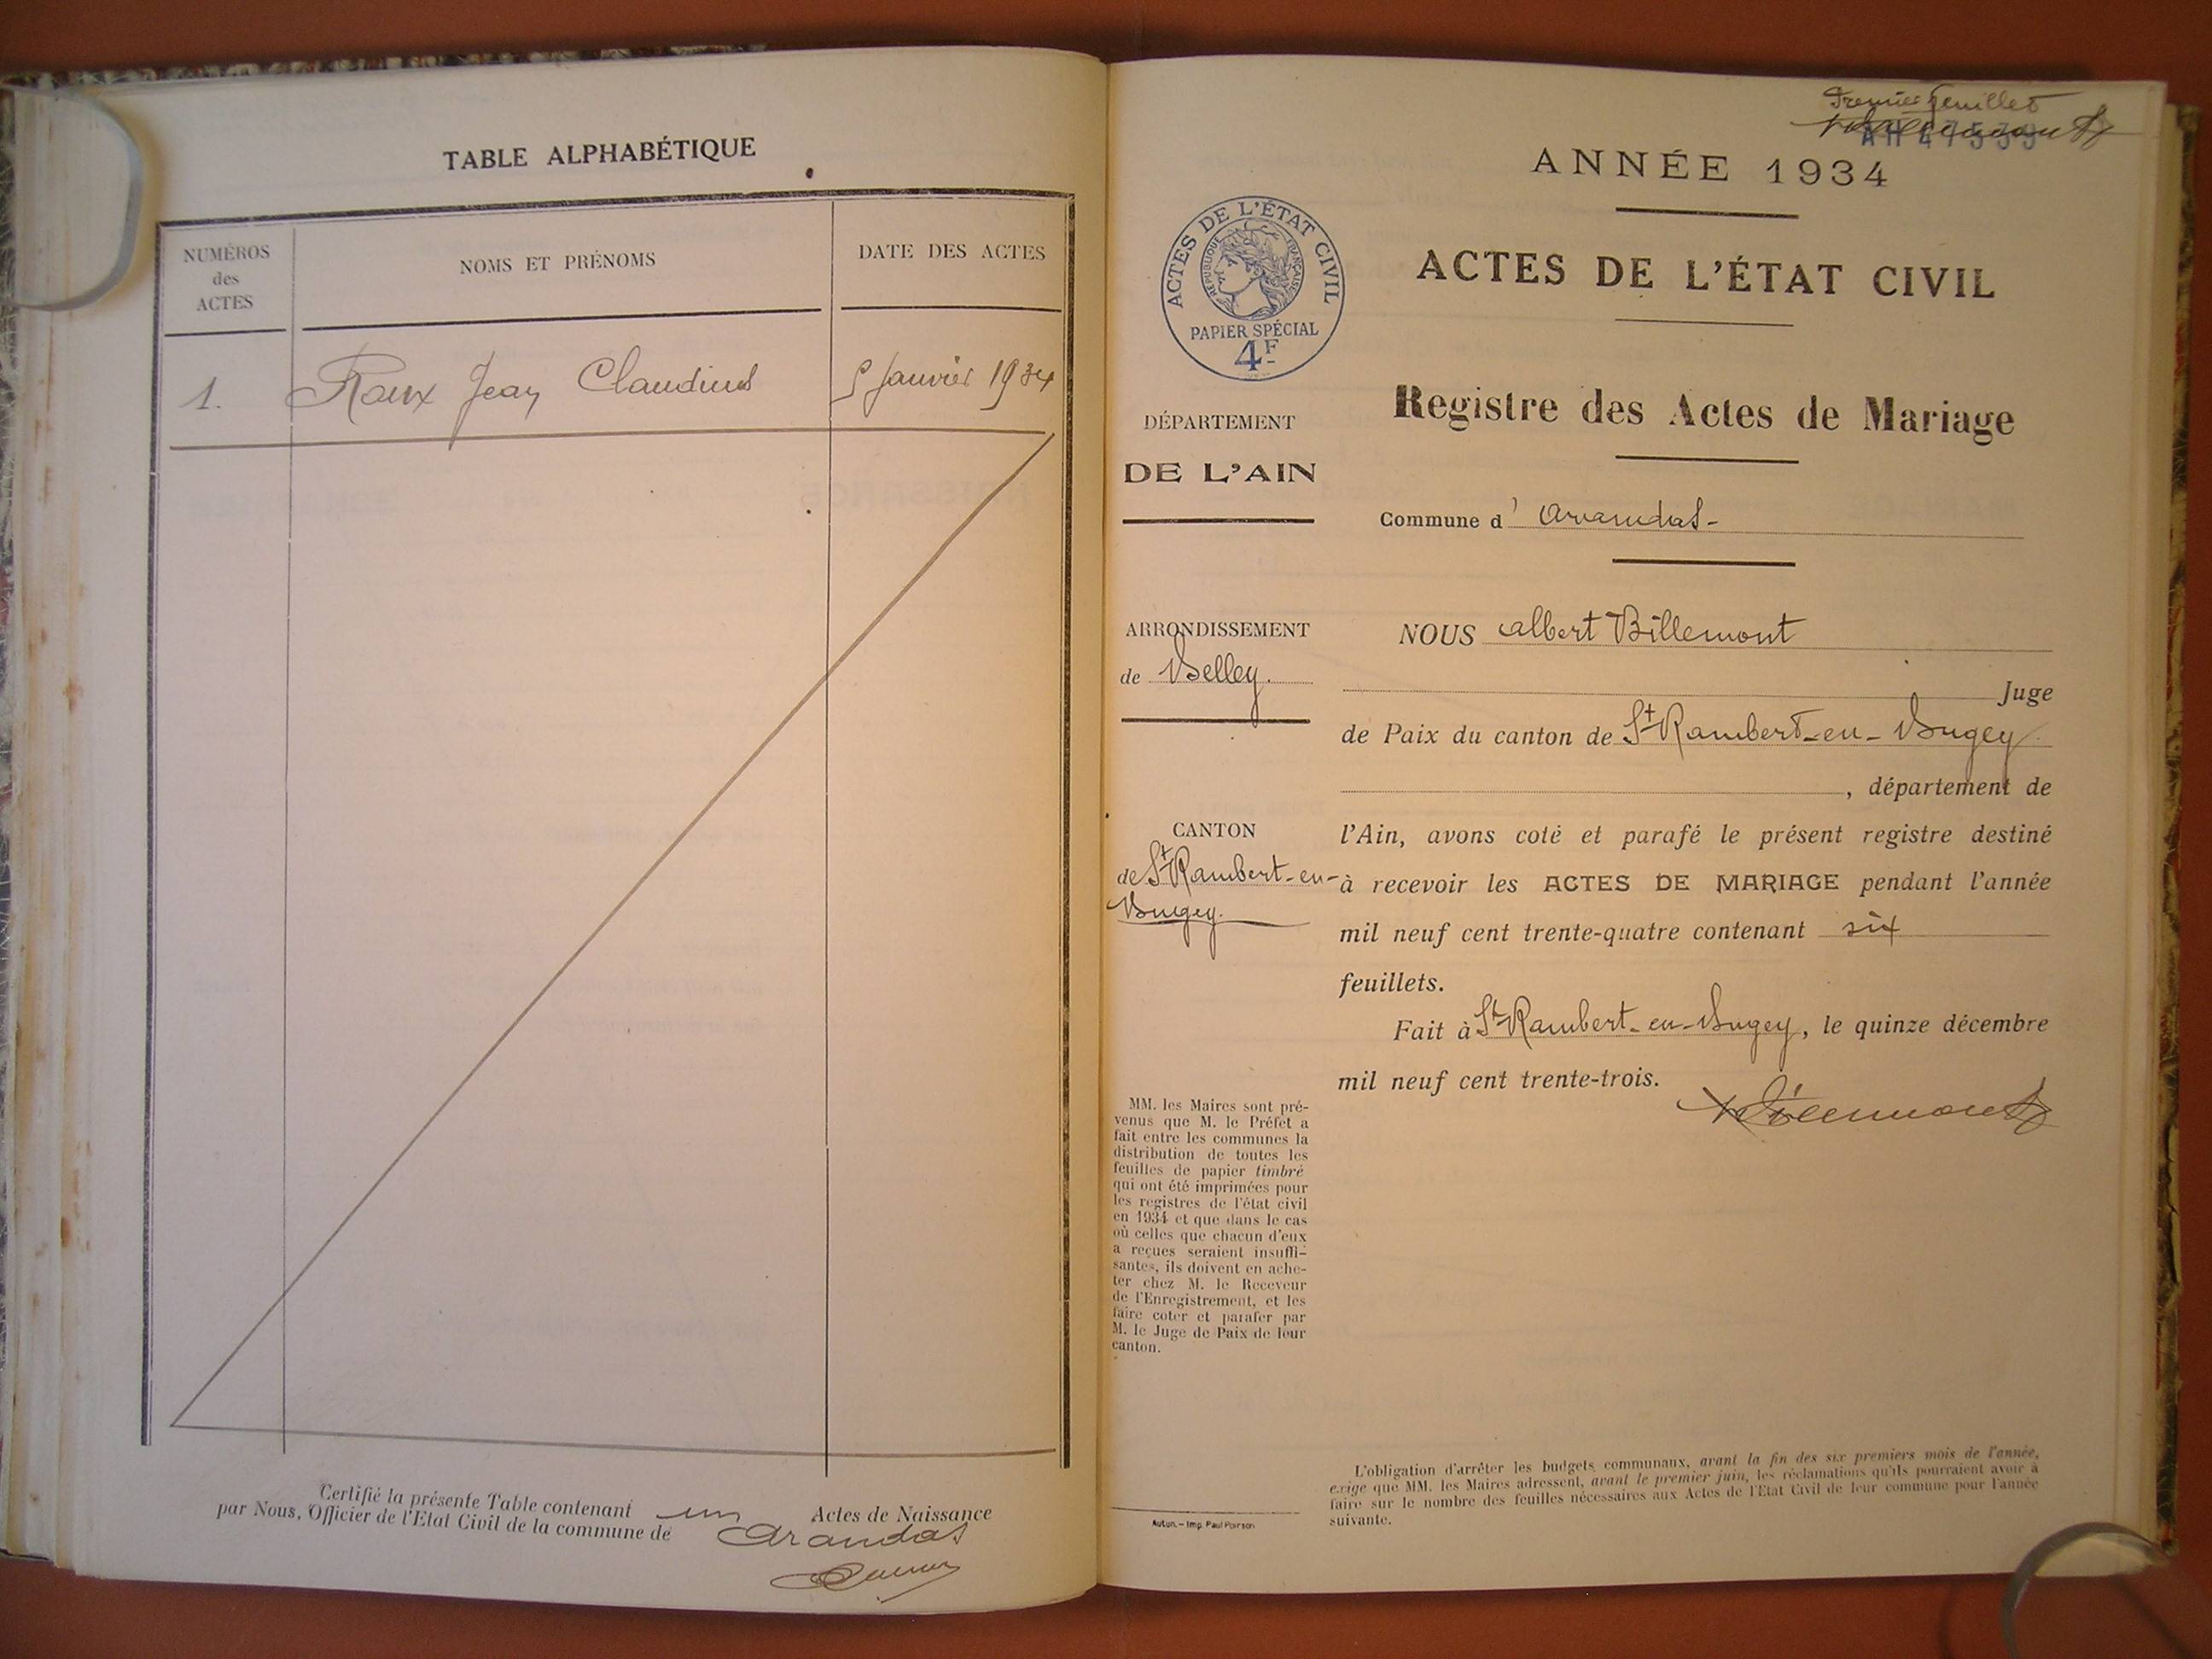 TABLE ALPHABÉTIQUE
NUMÉROS
des
ACTES
NOMS ET PRÉNOMS
DATE DES ACTES
1. Roux Jean Claudius 5 Janvier 1934
Certifié la présente Table contenant un Actes de Naissance
par Nous, Officier de l'Etat Civil de la commune de Arandas
Premier feuillet
ANNÉE 1934
ACTES DE L'ÉTAT CIVIL
RÉPUBLIQUE FRANÇAISE
PAPIER SPÉCIAL
4F
ACTES DE L'ÉTAT CIVIL
Registre des Actes de Mariage
DÉPARTEMENT
DE L'AIN
Commune d' Arandas
ARRONDISSEMENT
de Belley.
NOUS Albert Billemont
Juge
de Paix du canton de St Rambert-en-Bugey
, département de
CANTON
de St Rambert-en-
Bugey.
l'Ain, avons coté et parafé le présent registre destiné
à recevoir les ACTES DE MARIAGE pendant l'année
mil neuf cent trente-quatre contenant six
feuillets.
Fait à St Rambert-en-Bugey, le quinze décembre
mil neuf cent trente-trois.
MM. les Maires sont pré-
venus que M. le Préfet a
fait entre les communes la
distribution de toutes les
feuilles de papier timbré
qui ont été imprimées pour
les registres de l'état civil
en 1934 et que dans le cas
où celles que chacun d'eux
a reçues seraient insuffi-
santes, ils doivent en ache-
ter chez M. le Receveur
de l'Enregistrement, et les
faire coter et parafer par
M. le Juge de Paix de leur
canton.
Autun. – Imp. Paul Poirson
L'obligation d'arrêter les budgets communaux, avant la fin des six premiers mois de l'année,
exige que MM. les Maires adressent, avant le premier juin, les réclamations qu'ils pourraient avoir à
faire sur le nombre des feuilles nécessaires aux Actes de l'Etat Civil de leur commune pour l'année
suivante.